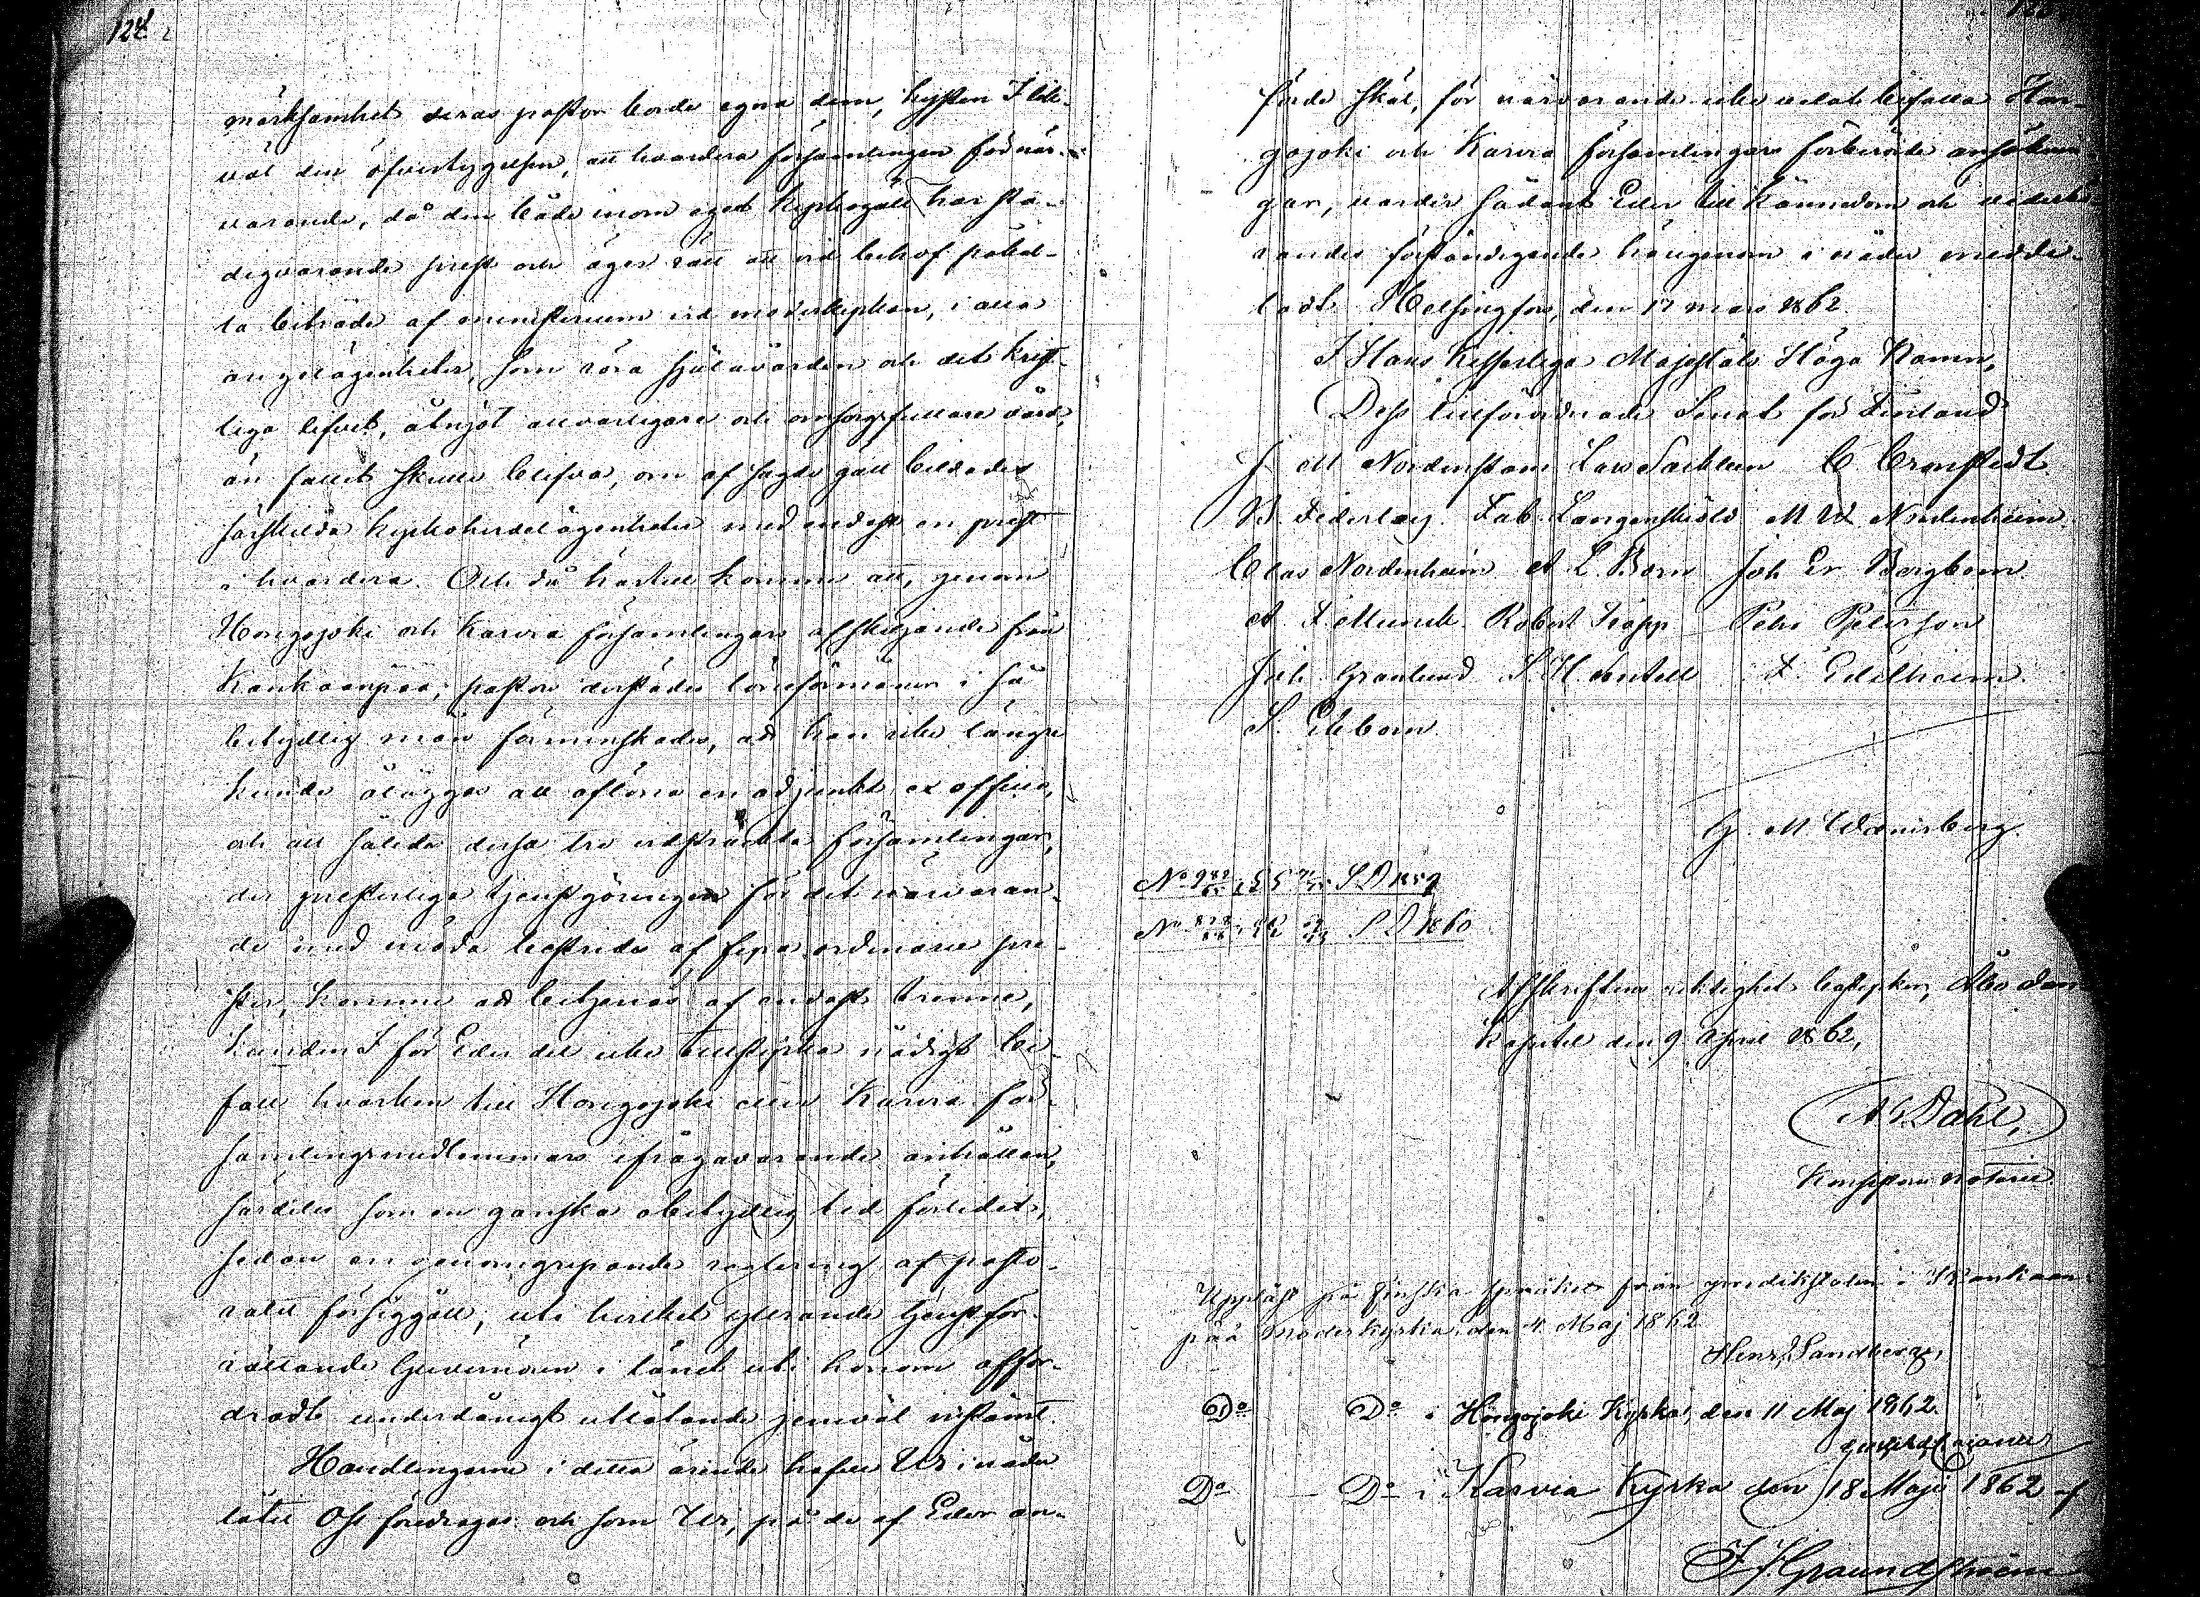 124
märksamhet deras pastor borde egna dem, hysten I lik-
väl den öfvertygelsen, att hvardera församlingen förnär-
varande, då den både inom eget kyrkogäll har stä-
digvarande prest och äger rätt att vid behof påkal-
la biträde af ministerium vid moderkyrkan, i alla
angelägenheter, som röra själavården och det krist-
liga lifvet, åtnjöt allvarligare och omsorgsfullare vård,
än fallet skulle blifva, om af sagde gäll bildades
särskilda kyrkoherdelägenheter med endast en prest
i hvardera. Och då härtill komme att, genom
Hongojoki och Karvia församlingars afskiljande från
Kankaanpää, pastors derstädes löneförmåner i så
betydlig mån förminskades, att han icke längre
kunde åläggas att aflöna en adjunkt ex officio,
och att således dessa tre vidsträckta församlingar,
der presterliga tjenstgöringen för det närvaran-
de med möda bestrides af fyra ordinarie pre-
ster, komme att betjenas af endast trenne,
kunden I för Eder del icke tillstyrka nådigt bi-
fall hvarken till Hongojoki eller Karvia för-
samlingsmedlemmars ifrågavarande anhållan,
särdeles som en ganska obetydlig tid förlidit,
sedan en genomgripande reglering af pasto-
ratet försiggått; uti hvilket yttrande tjenstför-
rättande Guvernören i länet uti honom affor-
dradt underdånigt utlåtande jemväl instämt.
Handlingarne i detta ärende hafve Wi i nåder
låtit Oss föredragas och som Wi, på de af Eder an-
förde skäl, för närvarande icke velat bifalla Hon-
gojoki och Karvia församlingars förberörde ansöknin-
gar, varder sådant Eder till kännedom och vederbö-
randes förständigande härigenom i nåder medde-
ladt. Helsingfors, den 17 mars 1862.
I Hans Kejserliga Majestäts Höga Namn,
Dess tillförordnade Senat för Finland
J M Nordenstam Lars Sackleen C Cronstedt
B. Federley. Fab. Langenskiöld M W Nordenheim
Clas Nordenheim A L. Born Joh Er Bergbom.
A F Munck. Robert Trapp Petr. Peterson
Joh. Granlund S. H Antell F. Edelheim
S. Eleborn
G. M. Wænerberg.
No S D 1859
No S D 1860
Afskriftens riktighet bestyrker, Åbo Dom
kapitel den 9 April 1862,
A G Dahl,
Konsistorii notarie
Uppläst på finska språket från predikstolen i Kankaan-
pää moderkyrka, den 4 Maj 1862
Henr. Sandberg,
Do Do i Hongojoki Kyrka, den 11 Maj 1862.
Do Do i Karvia Kyrka den 18 Maji 1862 af
F. J. Graundstroem